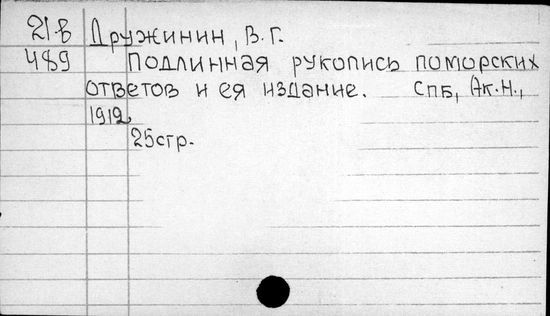 21-в Дружинин, В.Г.
489 Подлинная рукопись поморских
ответов и ея издание. СПБ, Ак.Н.,
1912,
25стр.